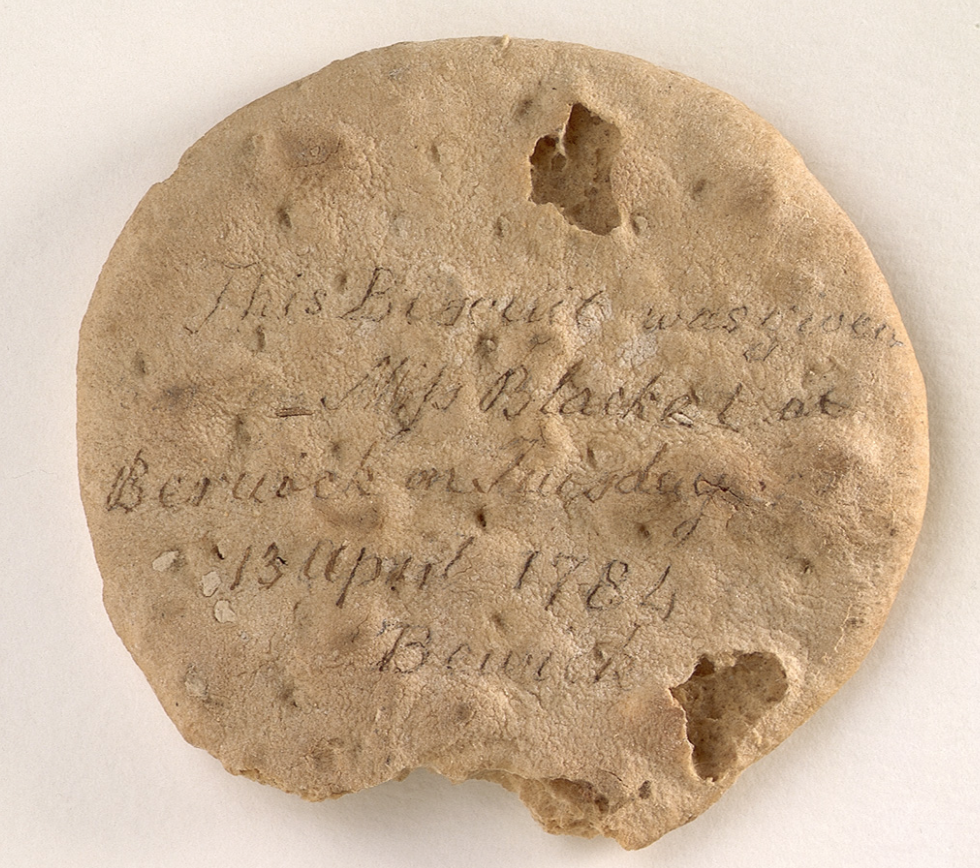 This Biscuit was given
– Miſs Blacket at
Berwick on Tuesday
13 April 1784
Bewick